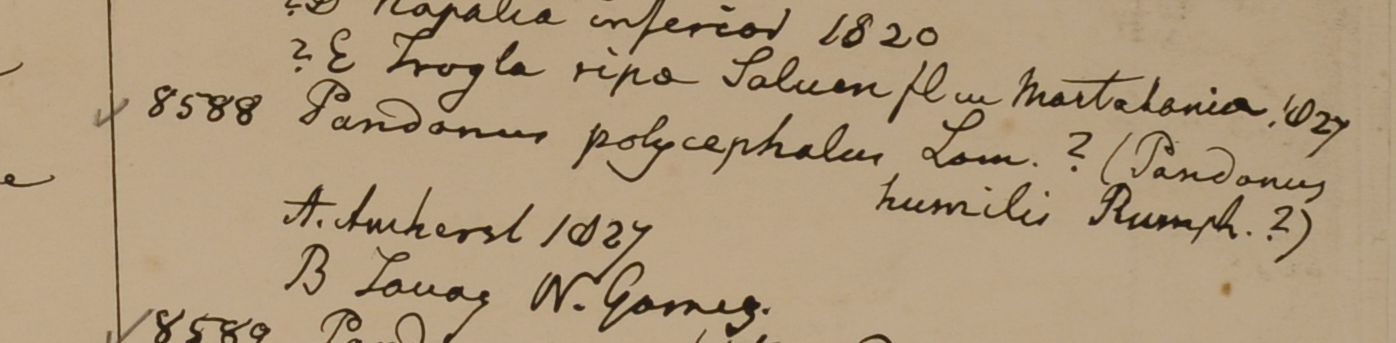 ?D Napalia inferior 1820
? E Trogla ripa Saluen fluu Martabania, 1827
8588 Pandanus polycephalus Lam. ? (Pandanus
humilis Rumph. ?)
A. Amherst 1827
B Tavoy W. Gomez.
8589